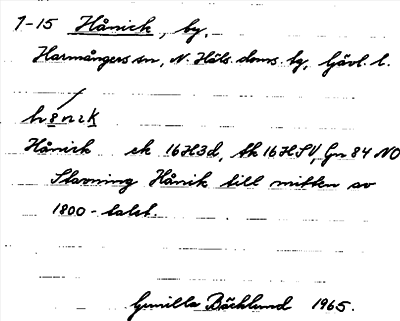 1-15 Hånick, by,
Harmångers sn, N. Häls. doms. by, Gävl. l.
Hånick ek 16H3d, tk 16HSV, Gn 84 NO
Stavning Hånik till mitten av
1800-talet.
Gunilla Bäcklund 1965.